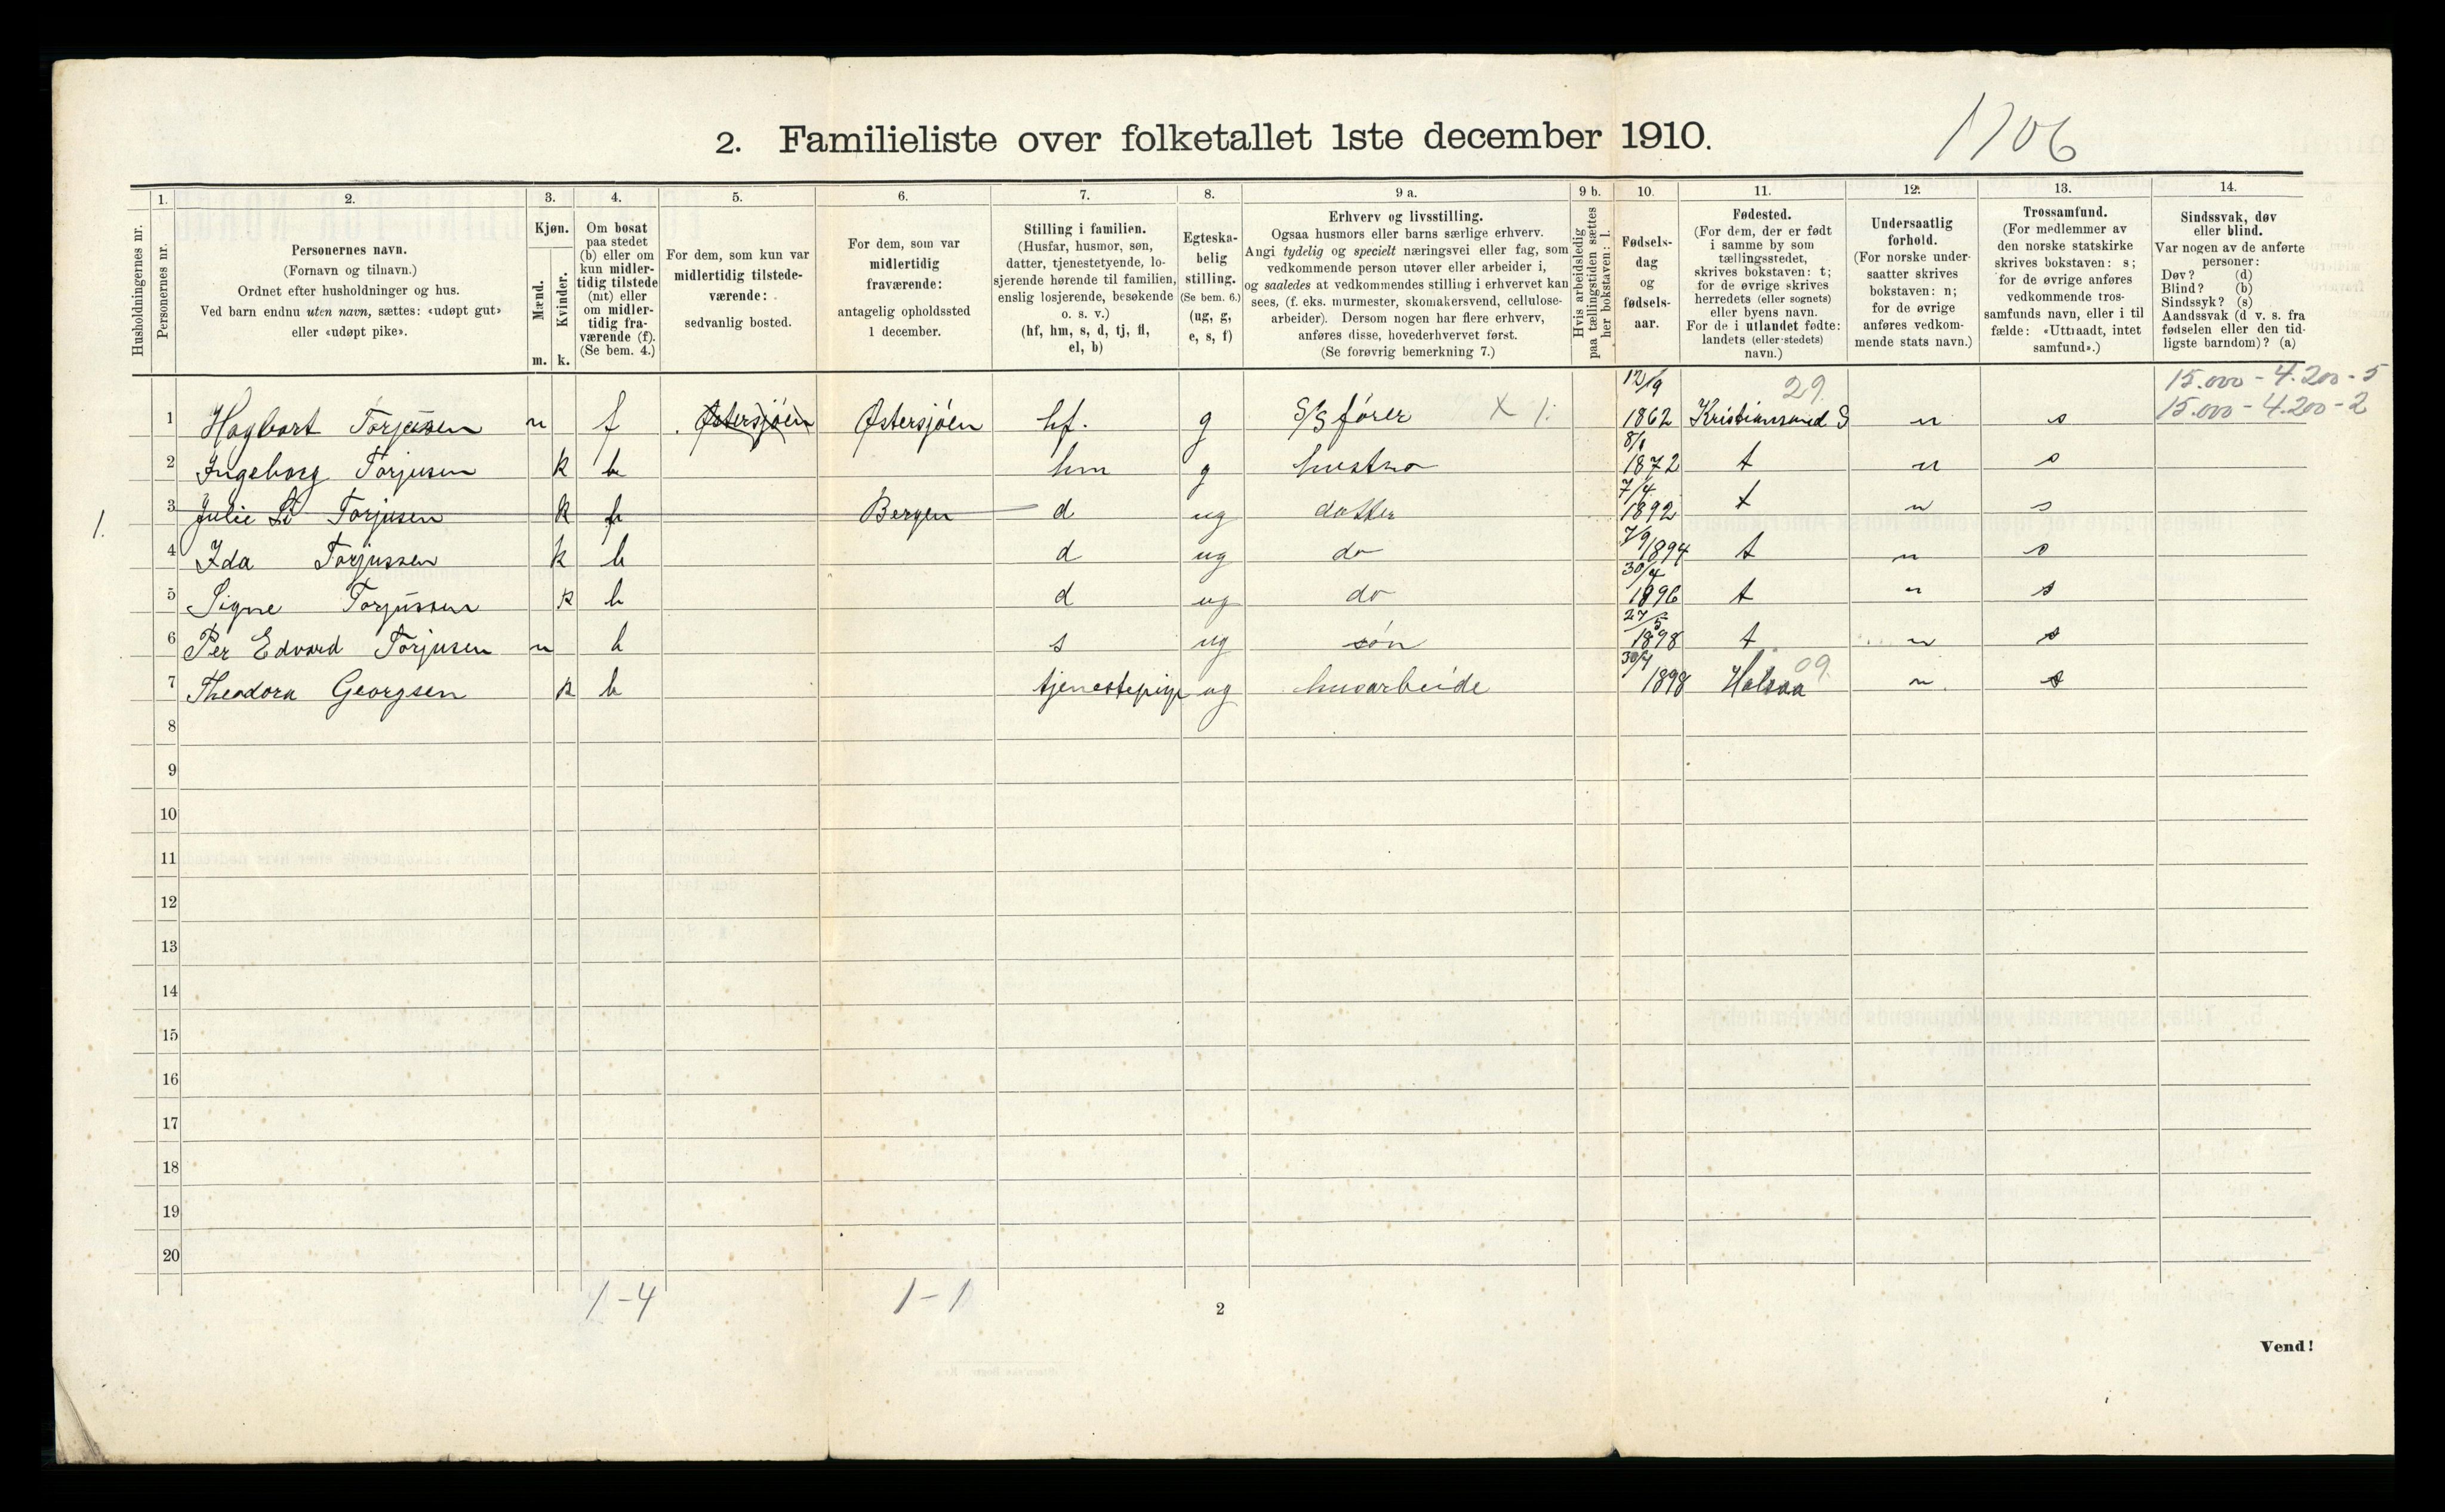 2. Familieliste over folketallet 1ste december 1910.
1706
Husholdningernes nr.
1.
Personernes nr.
2.
Personernes navn.
(Fornavn og tilnavn.)
Ordnet efter husholdninger og hus.
Ved barn endnu uten navn, sættes: «udøpt gut»
eller «udøpt pike».
3.
Kjøn.
Mænd.
Kvinder.
m. k.
4.
Om bosat
paa stedet
(b) eller om
kun midler-
tidig tilstede
(mt) eller
om midler-
tidig fra-
værende (f).
(Se bem. 4.)
5.
For dem, som kun var
midlertidig tilstede-
værende:
sedvanlig bosted.
6.
For dem, som var
midlertidig
fraværende:
antagelig opholdssted
1 december.
7.
Stilling i familien.
(Husfar, husmor, søn,
datter, tjenestetyende, lo-
sjerende hørende til familien,
enslig losjerende, besøkende
o. s. v.)
(hf, hm, s, d, tj, fl,
el, b)
8.
Egteska-
belig
stilling.
(Se bem. 6.)
(ug, g,
e, s, f)
9 a.
Erhverv og livsstilling.
Ogsaa husmors eller barns særlige erhverv.
Angi tydelig og specielt næringsvei eller fag, som
vedkommende person utøver eller arbeider i,
og saaledes at vedkommendes stilling i erhvervet kan
sees, (f. eks. murmester, skomakersvend, cellulose-
arbeider). Dersom nogen har flere erhverv,
anføres disse, hovederhvervet først.
(Se forøvrig bemerkning 7.)
9 b.
Hvis arbeidsledig
paa tællingstiden sættes
her bokstaven: l.
10.
Fødsels-
dag
og
fødsels-
aar.
11.
Fødested.
(For dem, der er født
i samme by som
tællingsstedet,
skrives bokstaven: t;
for de øvrige skrives
herredets (eller sognets)
eller byens navn.
For de i utlandet fødte:
landets (eller stedets)
navn.)
12.
Undersaatlig
forhold.
(For norske under-
saatter skrives
bokstaven: n;
for de øvrige
anføres vedkom-
mende stats navn.)
13.
Trossamfund.
(For medlemmer av
den norske statskirke
skrives bokstaven: s;
for de øvrige anføres
vedkommende tros-
samfunds navn, eller i til
fælde: «Uttraadt, intet
samfund».)
14.
Sindssvak, døv
eller blind.
Var nogen av de anførte
personer:
Døv? (d)
Blind? (b)
Sindssyk? (s)
Aandssvak (d v. s. fra
fødselen eller den tid-
ligste barndom)? (a)
15.000 - 4.200 - 5
15.000 - 4.200 - 2
1 Hagbart Torjusen m f Østersjøen Østersjøen hf. g S/S fører X 1. 12/9 1862 29. Kristiansand S n s
2 Ingeborg Torjusen k b hm g hustro 8/1 1872 t n s
1. 3 Julie Torjusen k f Bergen d ug datter 7/4 1892 t n s
4 Ida Torjussen k b d ug do 7/9 1894 t n s
5 Signe Torjussen k b d ug do 30/4 1896 t n s
6 Per Edvard Torjusen m b s ug søn 27/5 1898 t n s
7 Theodora Georgsen k b tjenestepige ug husarbeide 30/4 1898 Halsaa 09. n s
8
9
10
11
12
13
14
15
16
17
18
19
20
1-4 1-1
2
Vend!